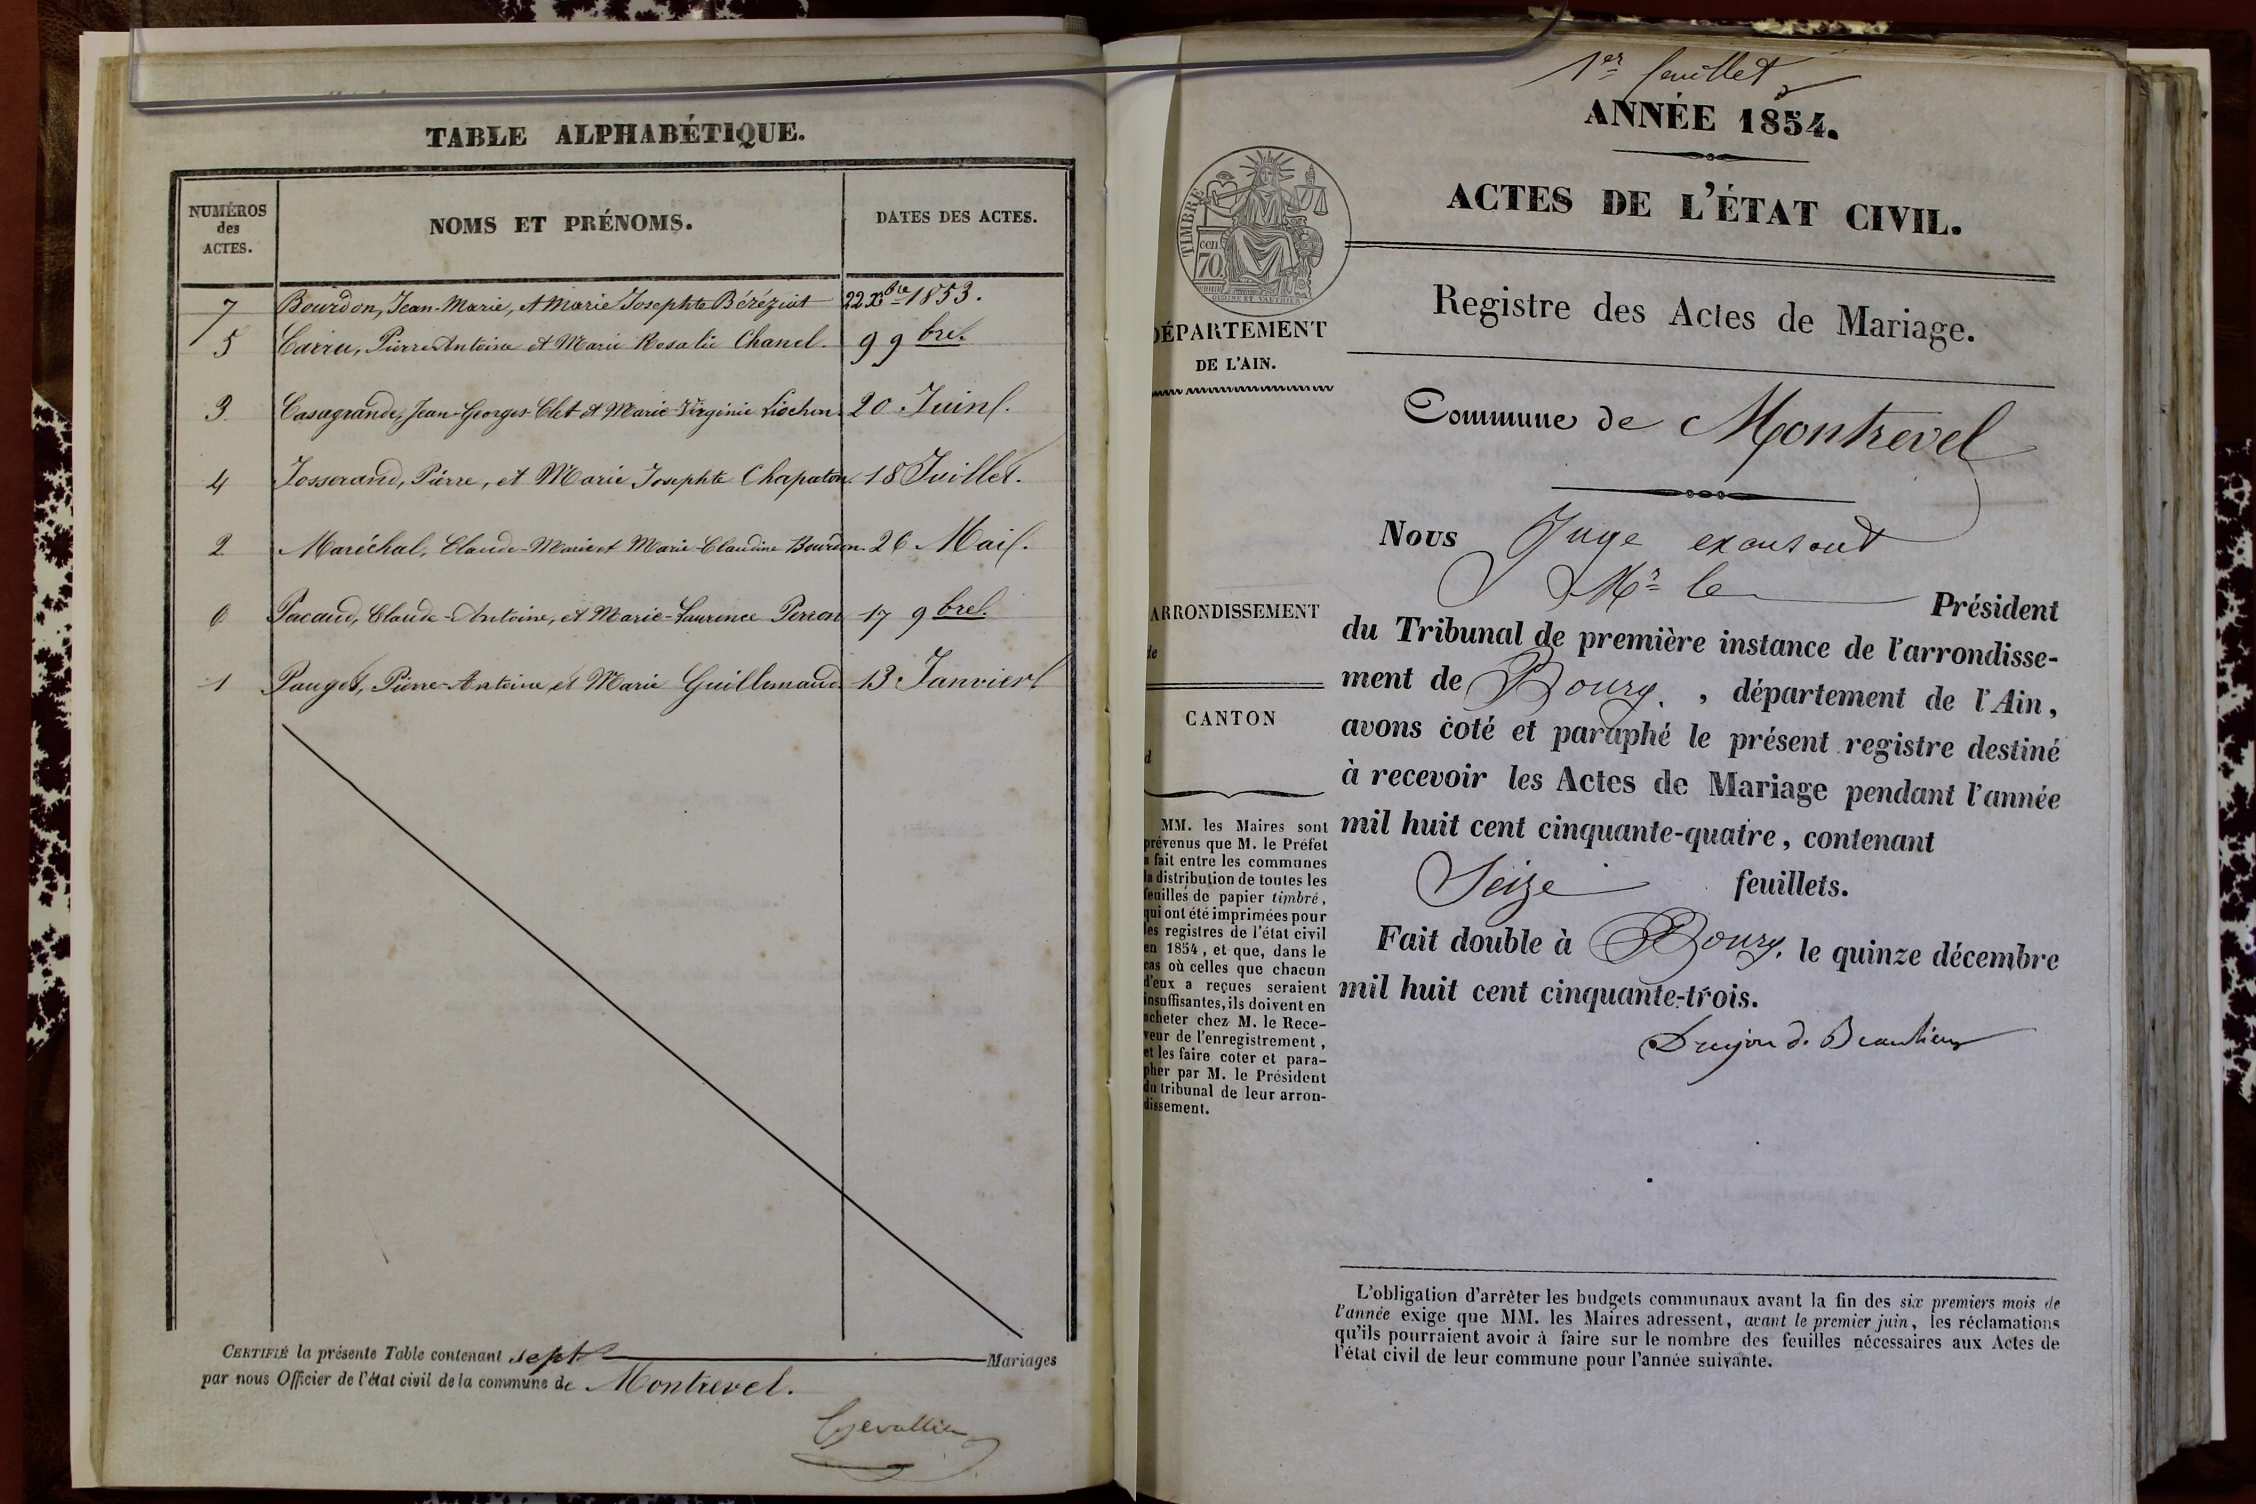 TABLE ALPHABÉTIQUE.
NUMÉROS
des
ACTES.
NOMS ET PRÉNOMS.
DATES DES ACTES.
7 Bourdon, Jean-Marie, et Marie Josephte Béréziat 22 Xbre 1853.
5 Carru, Pierre Antoine et Marie Rosalie Chanel. 9 9bre.
3. Casagrande, Jean-Georges Clet et Marie-Virginie Liochon. 20 Juin.
4 Josserand, Pierre, et Marie Josephte Chapaton. 18 Juillet.
2 Maréchal, Claude-Marie et Marie-Claudine Bourdon. 26 Mai.
6 Pacaud, Claude-Antoine, et Marie-Laurence Perron 17 9bre.
1 Pauget, Pierre-Antoine et Marie Guillemaud 13 Janvier
CERTIFIÉ la présente Table contenant sept Mariages
par nous Officier de l'état civil de la commune de Montrevel.
Chevallier
1er feuillet
ANNÉE 1854.
ACTES DE L'ÉTAT CIVIL.
TIMBRE
cen
70.
DÉPARTEMENT
DE L'AIN.
Registre des Actes de Mariage.
Commune de Montrevel
ARRONDISSEMENT
de
CANTON
d
MM. les Maires sont
prévenus que M. le Préfet
a fait entre les communes
la distribution de toutes les
feuilles de papier timbré,
qui ont été imprimées pour
les registres de l'état civil
en 1854, et que, dans le
cas où celles que chacun
d'eux a reçues seraient
insuffisantes, ils doivent en
acheter chez M. le Rece-
veur de l'enregistrement,
et les faire coter et para-
pher par M. le Président
du tribunal de leur arron-
dissement.
Nous Juge excusant
Mr le Président
du Tribunal de première instance de l'arrondisse-
ment de Bourg. , département de l'Ain,
avons coté et paraphé le présent registre destiné
à recevoir les Actes de Mariage pendant l'année
mil huit cent cinquante-quatre, contenant
Seize feuillets.
Fait double à Bourg, le quinze décembre
mil huit cent cinquante-trois.
Dujon de Beaulieu
L'obligation d'arrêter les budgets communaux avant la fin des six premiers mois de
l'année exige que MM. les Maires adressent, avant le premier juin, les réclamations
qu'ils pourraient avoir à faire sur le nombre des feuilles nécessaires aux Actes de
l'état civil de leur commune pour l'année suivante.